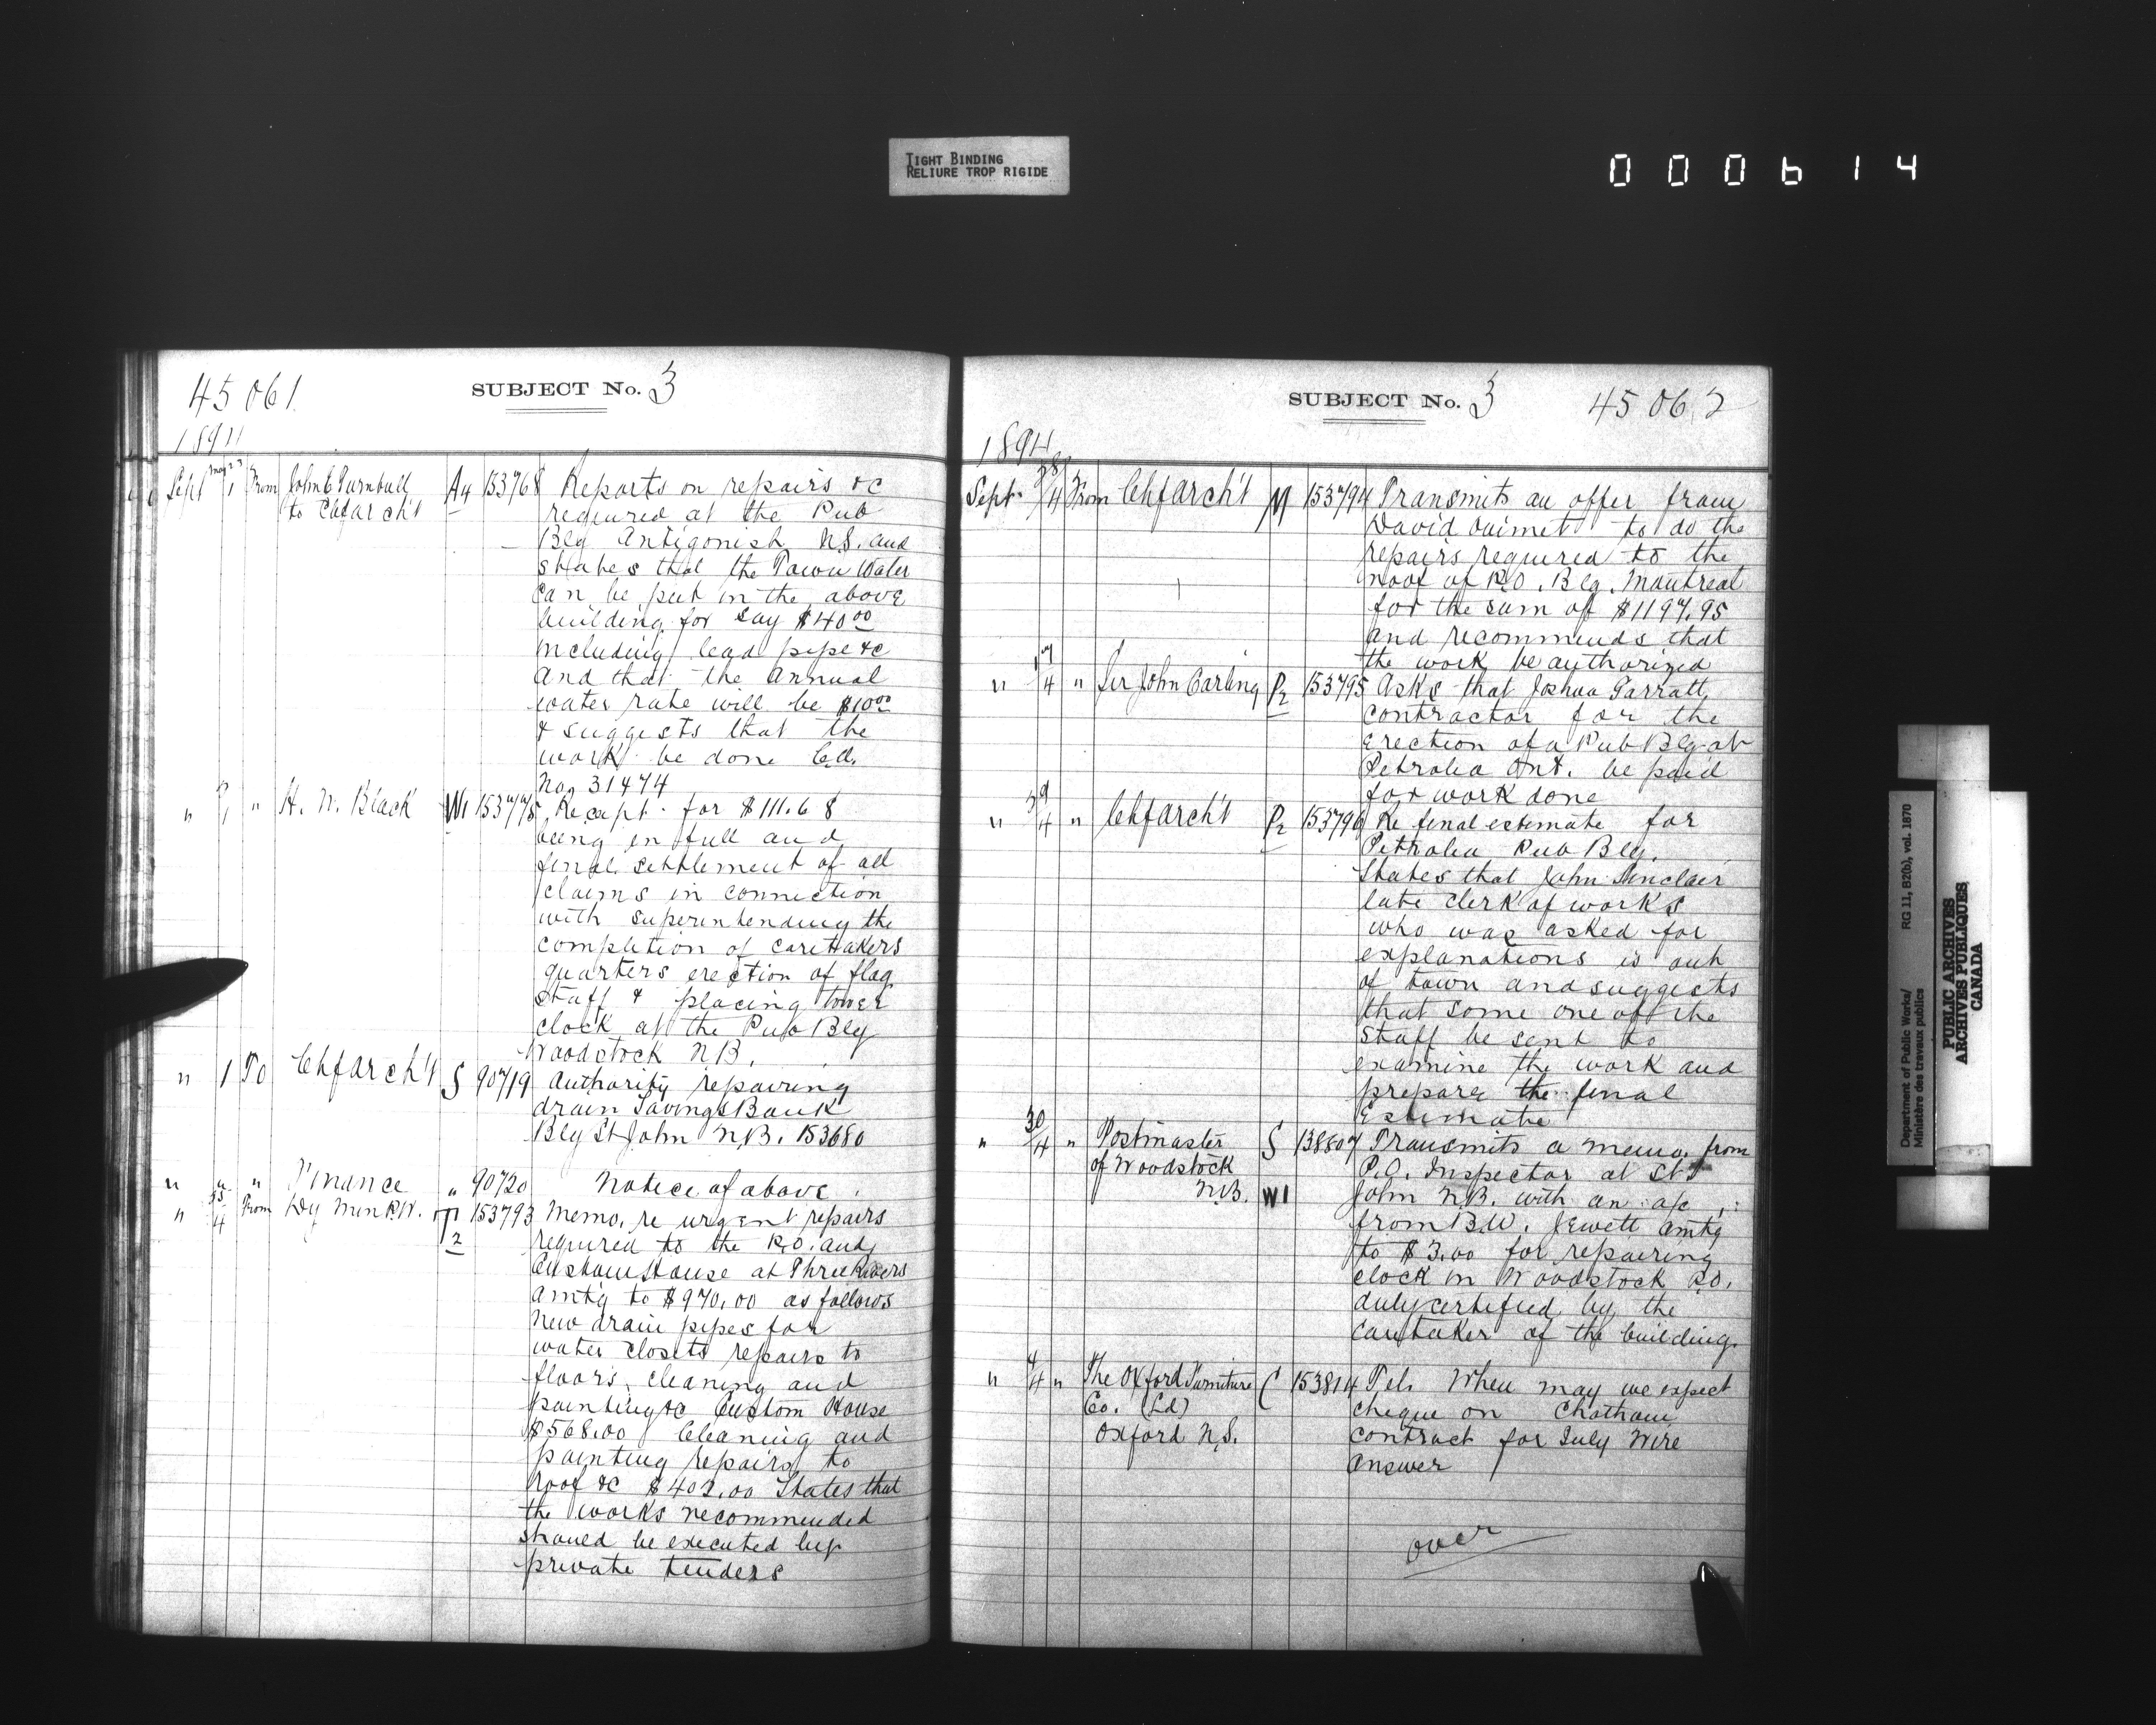 TIGHT BINDING
RELIURE TROP RIGIDE
000614
45061
SUBJECT No. 3
1894
Sept 1 From John C Turnbull to Chfarch't A4 153768 Reports on repairs &c
required at the Pub
Blg Antigonish N.S. and
states that the Town Water
can be put in the above
building for say $40.00
including lead pipe &c
and that the annual
water rate will be $10.00
& suggests that the
work be done C.d.
No. 31474
" 1 " H. N. Black W1 153775 Receipt for $111.68
being in full and
final settlement of all
claims in connection
with superintending the
completion of caretakers
quarters erection of flag
staff & placing tower
clock at the Pub Blg
Woodstock N.B.
" 1 To Chfarch't S 90719 Authority repairing
drain Savings Bank
Blg St John N.B. 153680
" " " Finance " 90720 Notice of above
" 4 From Dy Min P.W. T2 153793 Memo. re urgent repairs
required to the P.O. and
Custom House at Three Rivers
amtg to $970.00 as follows
New drain pipes for
water closets repairs to
floors, cleaning and
painting &c Custom House
$568.00 Cleaning and
painting repairs to
roof &c $402.00 States that
the works recommended
should be executed by
private tenders
SUBJECT No. 3
45062
1894
Sept. 28/4 From Chfarch't M 153794 Transmits an offer from
David Ouimet to do the
repairs required to the
roof of P.O. Blg. Montreal
for the sum of $1197.95
and recommends that
the work be authorized
" 4 " Sir John Carling P2 153795 Asks that Joshua Garratt
contractor for the
erection of a Pub Blg at
Petrolea Ont. be paid
for work done
" 4 " Chfarch't P2 153796 Re final estimate for
Petrolea Pub Blg.
States that John Sinclair
late clerk of works
who was asked for
explanations is out
of town and suggests
that some one of the
staff be sent to
examine the work and
prepare the final
Estimate
" 30/4 " Postmaster S 138807 Transmits a memo. from
of Woodstock P.O. Inspector at St
N.B. W1 John N.B. with an a/c
from B.W. Jewett amtg
to $3.00 for repairing
clock in Woodstock P.O.
duly certified by the
caretaker of the building.
" 4/4 " The Oxford Furniture C 153814 Tel. When may we expect
Co. (Ld) cheque on Chatham
Oxford N.S. contract for July Wire
answer
over
Department of Public Works/ RG 11, B2(b), vol. 1870
Ministère des travaux publics
PUBLIC ARCHIVES
ARCHIVES PUBLIQUES
CANADA